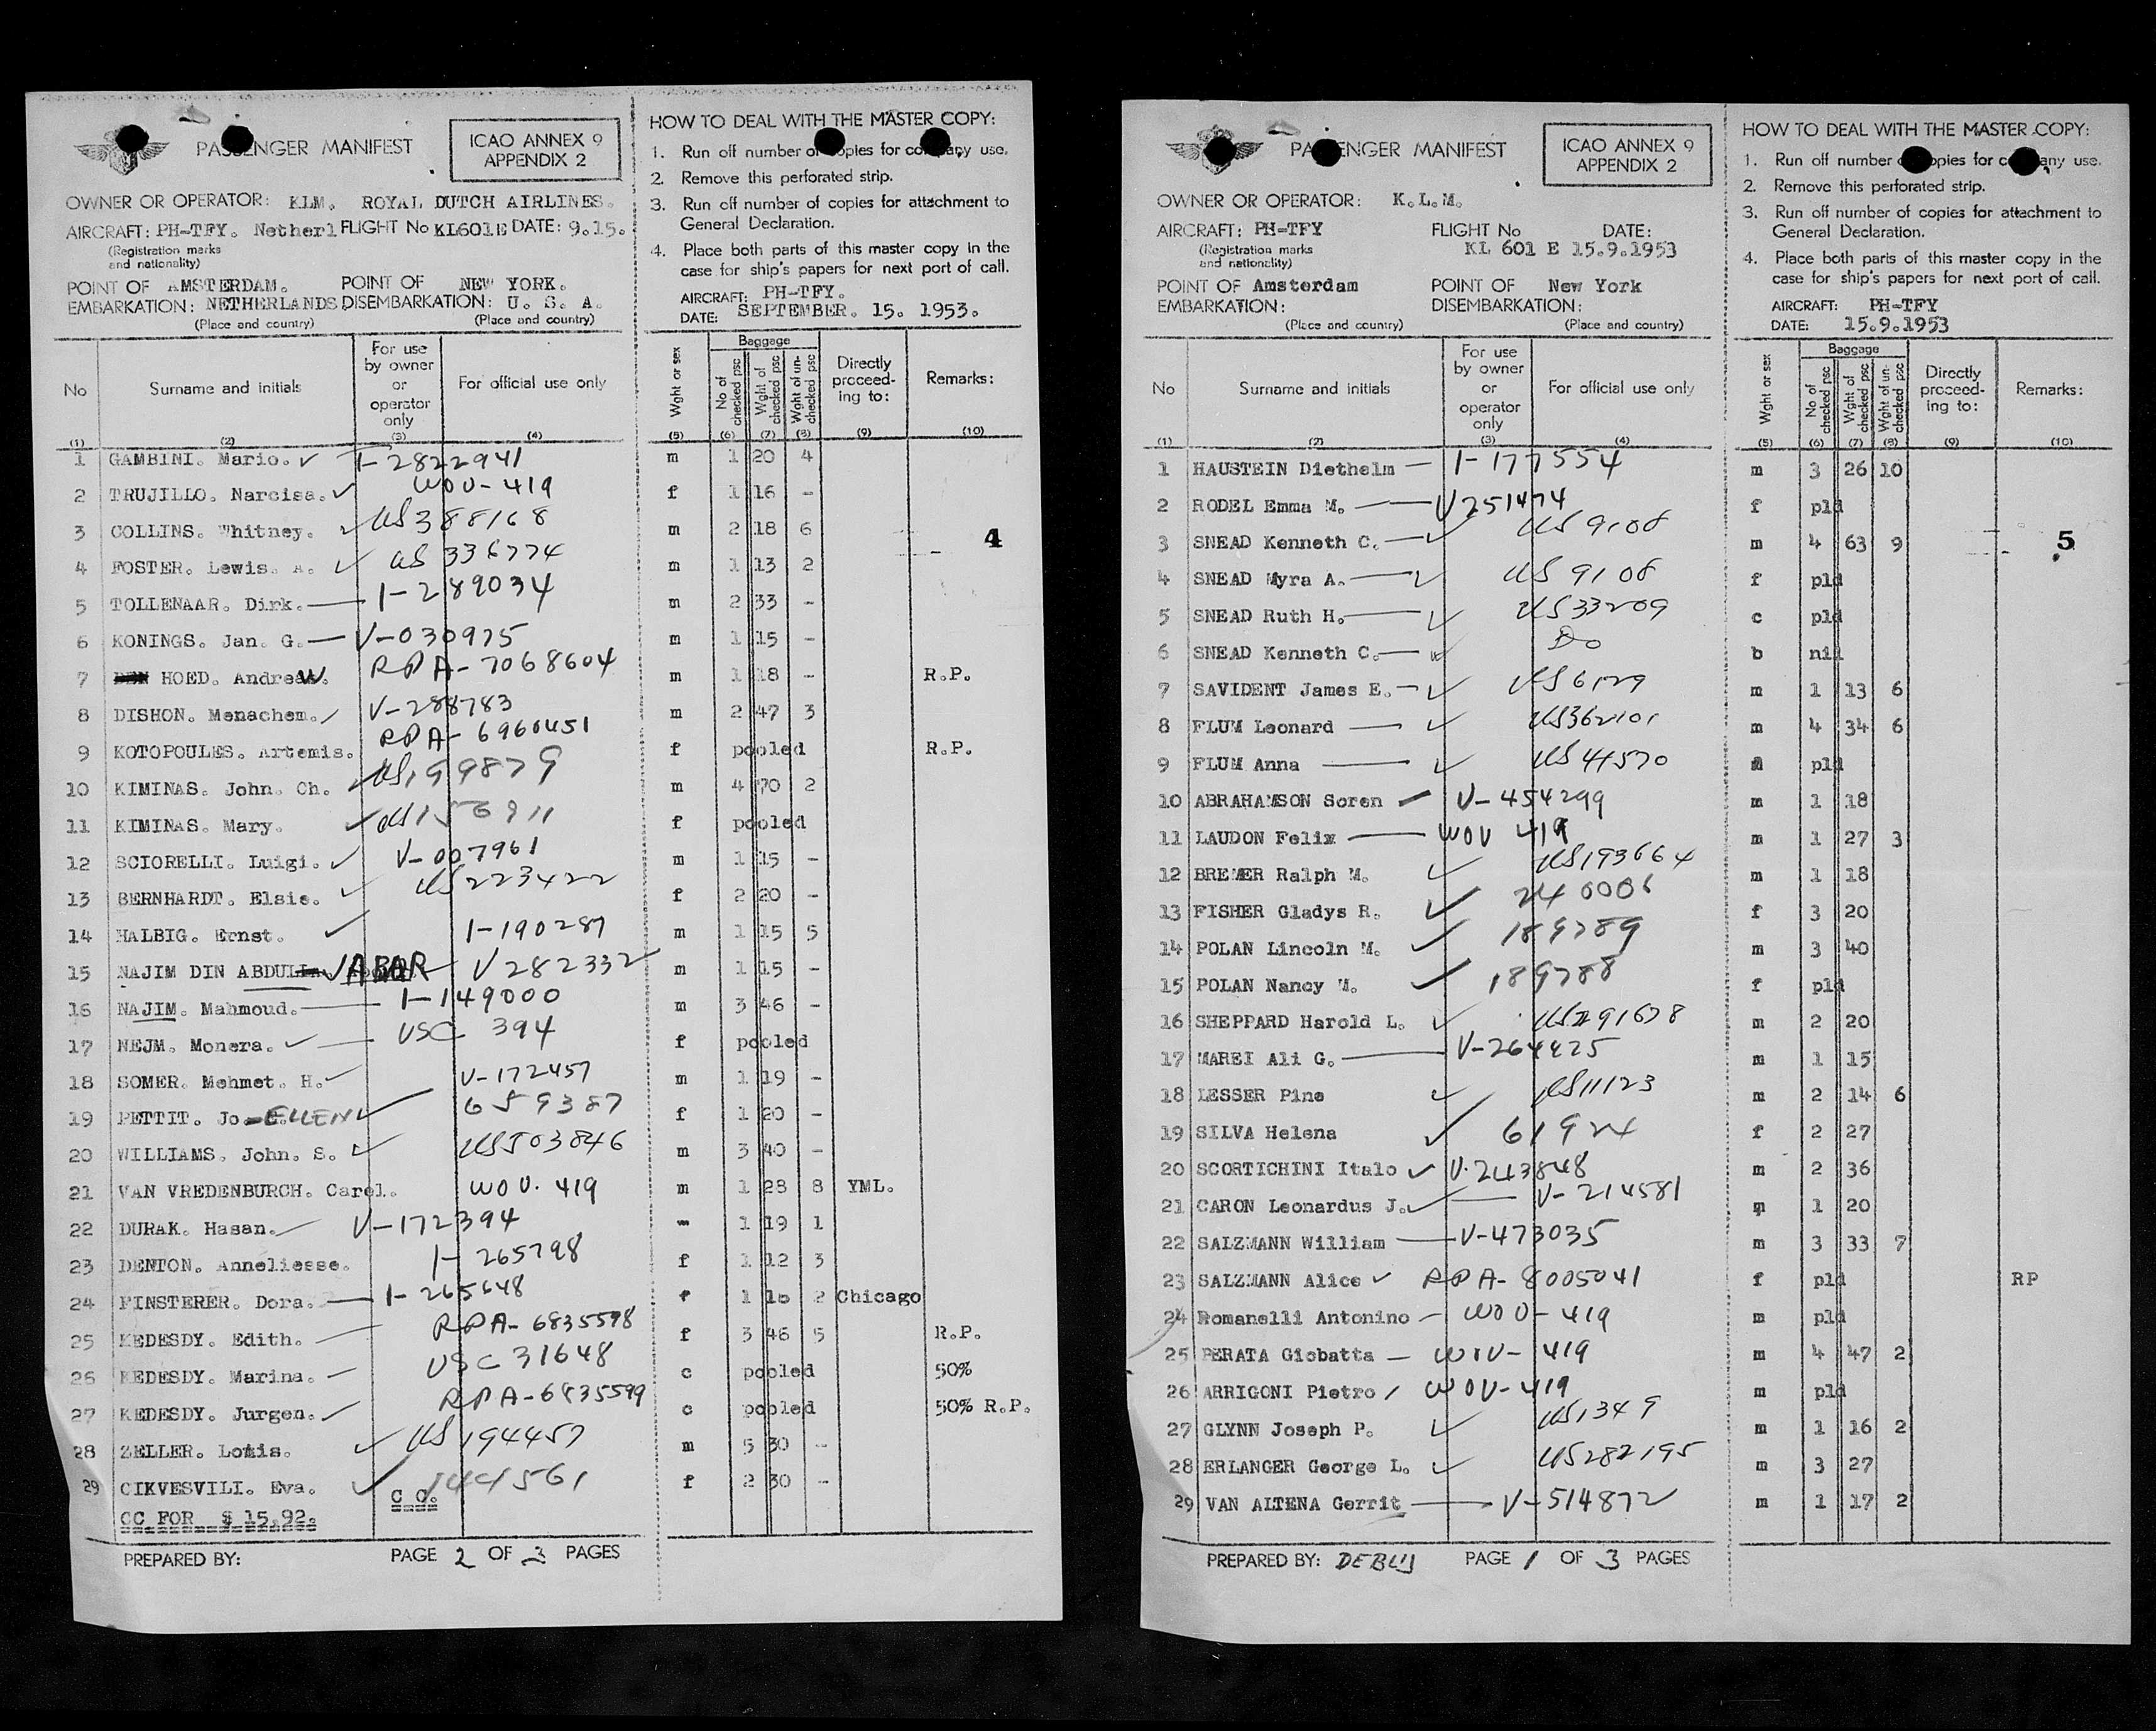 PASSENGER MANIFEST
ICAO ANNEX 9
APPENDIX 2
OWNER OR OPERATOR: KLM. ROYAL DUTCH AIRLINES.
AIRCRAFT: PH-TFY. Netherl FLIGHT No KL601E DATE: 9.15.
(Registration marks
and nationality)
POINT OF AMSTERDAM. POINT OF NEW YORK.
EMBARKATION: NETHERLANDS. DISEMBARKATION: U. S. A.
(Place and country) (Place and country)
HOW TO DEAL WITH THE MASTER COPY:
1. Run off number of copies for company use.
2. Remove this perforated strip.
3. Run off number of copies for attachment to
General Declaration.
4. Place both parts of this master copy in the
case for ship's papers for next port of call.
AIRCRAFT: PH-TFY.
DATE: SEPTEMBER. 15. 1953.
No Surname and initials For use by owner or operator only For official use only Wght or sex Baggage No of checked psc Wght of checked psc Wght of un-checked psc Directly proceed-ing to: Remarks:
(1) (2) (3) (4) (5) (6) (7) (8) (9) (10)
1 GAMBINI. Mario. ✓ I-2822941 m 1 20 4
2 TRUJILLO. Narcisa. ✓ WOV-419 f 1 16 -
3 COLLINS. Whitney. ✓ US388168 m 2 18 6
4
4 FOSTER. Lewis. A. ✓ US 336774 m 1 13 2
5 TOLLENAAR. Dirk. — I-289034 m 2 33 -
6 KONINGS. Jan. G. — V-030975 m 1 15 -
7 HOED. AndreaW. RPA-7068604 m 1 18 - R.P.
8 DISHON. Menachem. ✓ V-288783 m 2 47 3
9 KOTOPOULES. Artemis. RPA-6960451 f pooled R.P.
10 KIMINAS. John. Ch. ✓ US199879 m 4 70 2
11 KIMINAS. Mary. ✓ US156911 f pooled
12 SCIORELLI. Luigi. ✓ V-007961 m 1 15 -
13 BERNHARDT. Elsie. ✓ US223422 f 2 20 -
14 HALBIG. Ernst. ✓ I-190287 m 1 15 5
15 NAJIM DIN ABDUL JABAR V282332 m 1 15 -
16 NAJIM. Mahmoud. — I-149000 m 3 46 -
17 NEJM. Monera. ✓ — USC 394 f pooled
18 SOMER. Mehmet. H. ✓ V-172457 m 1 19 -
19 PETTIT. Jo-ELLEN ✓ 659387 f 1 20 -
20 WILLIAMS. John. S. ✓ US503846 m 3 40 -
21 VAN VREDENBURCH. Carel. WOV. 419 m 1 28 8 YML.
22 DURAK. Hasan. V-172394 1 19 1
23 DENTON. Anneliesse. I-265798 f 1 12 3
24 FINSTERER. Dora. — I-265648 f 1 2 Chicago
25 KEDESDY. Edith. — RPA-6835598 f 3 46 5 R.P.
26 KEDESDY. Marina. — USC 31648 c pooled 50%
27 KEDESDY. Jurgen. RPA-6835599 c pooled 50% R.P.
28 ZELLER. Louis. ✓ US194457 m 5 30 -
29 CIKVESVILI. Eva. ✓ 144561 f 2 30 -
CC FOR $ 15.92. C C.
PREPARED BY: PAGE 2 OF 3 PAGES
PASSENGER MANIFEST
ICAO ANNEX 9
APPENDIX 2
OWNER OR OPERATOR: K.L.M.
AIRCRAFT: PH-TFY FLIGHT No DATE:
(Registration marks
and nationality) KL 601 E 15.9.1953
POINT OF Amsterdam POINT OF New York
EMBARKATION: DISEMBARKATION:
(Place and country) (Place and country)
HOW TO DEAL WITH THE MASTER COPY:
1. Run off number of copies for company use.
2. Remove this perforated strip.
3. Run off number of copies for attachment to
General Declaration.
4. Place both parts of this master copy in the
case for ship's papers for next port of call.
AIRCRAFT: PH-TFY
DATE: 15.9.1953
No Surname and initials For use by owner or operator only For official use only Wght or sex Baggage No of checked psc Wght of checked psc Wght of un-checked psc Directly proceed-ing to: Remarks:
(1) (2) (3) (4) (5) (6) (7) (8) (9) (10)
1 HAUSTEIN Diethelm — I-177554 m 3 26 10
2 RODEL Emma M. — V251474 f pld
3 SNEAD Kenneth C. — ✓ US 9108 m 4 63 9
5
4 SNEAD Myra A. — ✓ US 9108 f pld
5 SNEAD Ruth H. — ✓ US33209 c pld
6 SNEAD Kenneth C. — ✓ Do b nil
7 SAVIDENT James E. — ✓ US6129 m 1 13 6
8 FLUM Leonard — ✓ US362101 m 4 34 6
9 FLUM Anna — ✓ US41570 pld
10 ABRAHAMSON Soren — V-454299 m 1 18
11 LAUDON Felix — WOV 419 m 1 27 3
12 BREMER Ralph M. ✓ US193664 m 1 18
13 FISHER Gladys R. ✓ 240006 f 3 20
14 POLAN Lincoln M. ✓ 189789 m 3 40
15 POLAN Nancy M. ✓ 189788 f pld
16 SHEPPARD Harold L. ✓ US291678 m 2 20
17 MAREI Ali G. — V-264425 m 1 15
18 LESSER Pine ✓ US11123 m 2 14 6
19 SILVA Helena ✓ 61924 f 2 27
20 SCORTICHINI Italo ✓ V.243848 m 2 36
21 CARON Leonardus J. ✓ — V-214581 m 1 20
22 SALZMANN William — V-473035 m 3 33 7
23 SALZMANN Alice ✓ RPA-8005041 f pld RP
24 Romanelli Antonino — WOV-419 m pld
25 PERATA Giobatta — WOV-419 m 4 47 2
26 ARRIGONI Pietro / WOV-419 m pld
27 GLYNN Joseph P. ✓ US1349 m 1 16 2
28 ERLANGER George L. ✓ US282195 m 3 27
29 VAN ALTENA Gerrit — V-514872 m 1 17 2
PREPARED BY: DEBLIJ PAGE 1 OF 3 PAGES